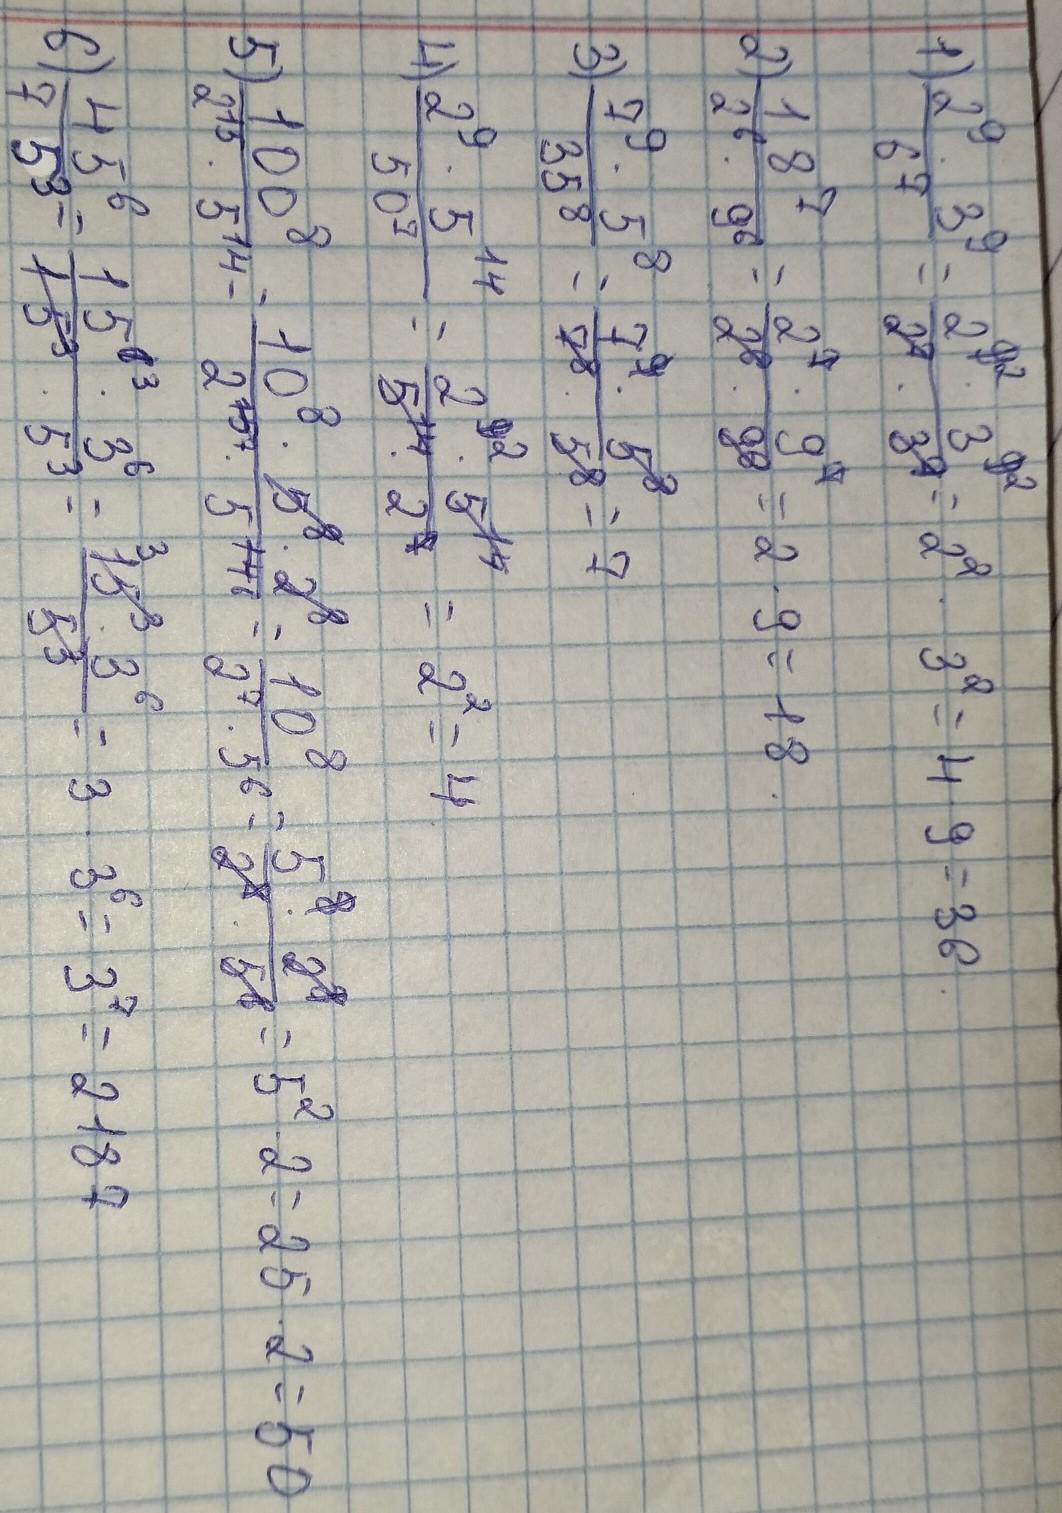 1) 2⁹ · 3⁹ / 6⁷ = 2⁹² · 3⁹² / 2⁷ · 3⁷ = 2² · 3² = 4 · 9 = 36.
2) 18⁷ / 2⁶ · 9⁶ = 2⁷ · 9⁷ / 2⁶ · 9⁶ = 2 · 9 = 18.
3) 7⁹ · 5⁸ / 35⁸ = 7⁹ · 5⁸ / 7⁸ · 5⁸ = 7
4) 2⁹ · 5¹⁴ / 50⁷ = 2⁹² · 5¹⁴ / 5¹⁴ · 2⁷ = 2² = 4.
5) 100⁸ / 2¹⁵ · 5¹⁴ = 10⁸ · 5⁸ · 2⁸ / 2¹⁵⁷ · 5¹⁴⁶ = 10⁸ / 2⁷ · 5⁶ = 5⁸ · 2⁸ / 2⁷ · 5⁶ = 5² · 2 = 25 · 2 = 50
6) 45⁶ / 75³ = 15⁶³ · 3⁶ / 15³ · 5³ = ³15³ · 3⁶ / 5³ = 3 · 3⁶ = 3⁷ = 2187